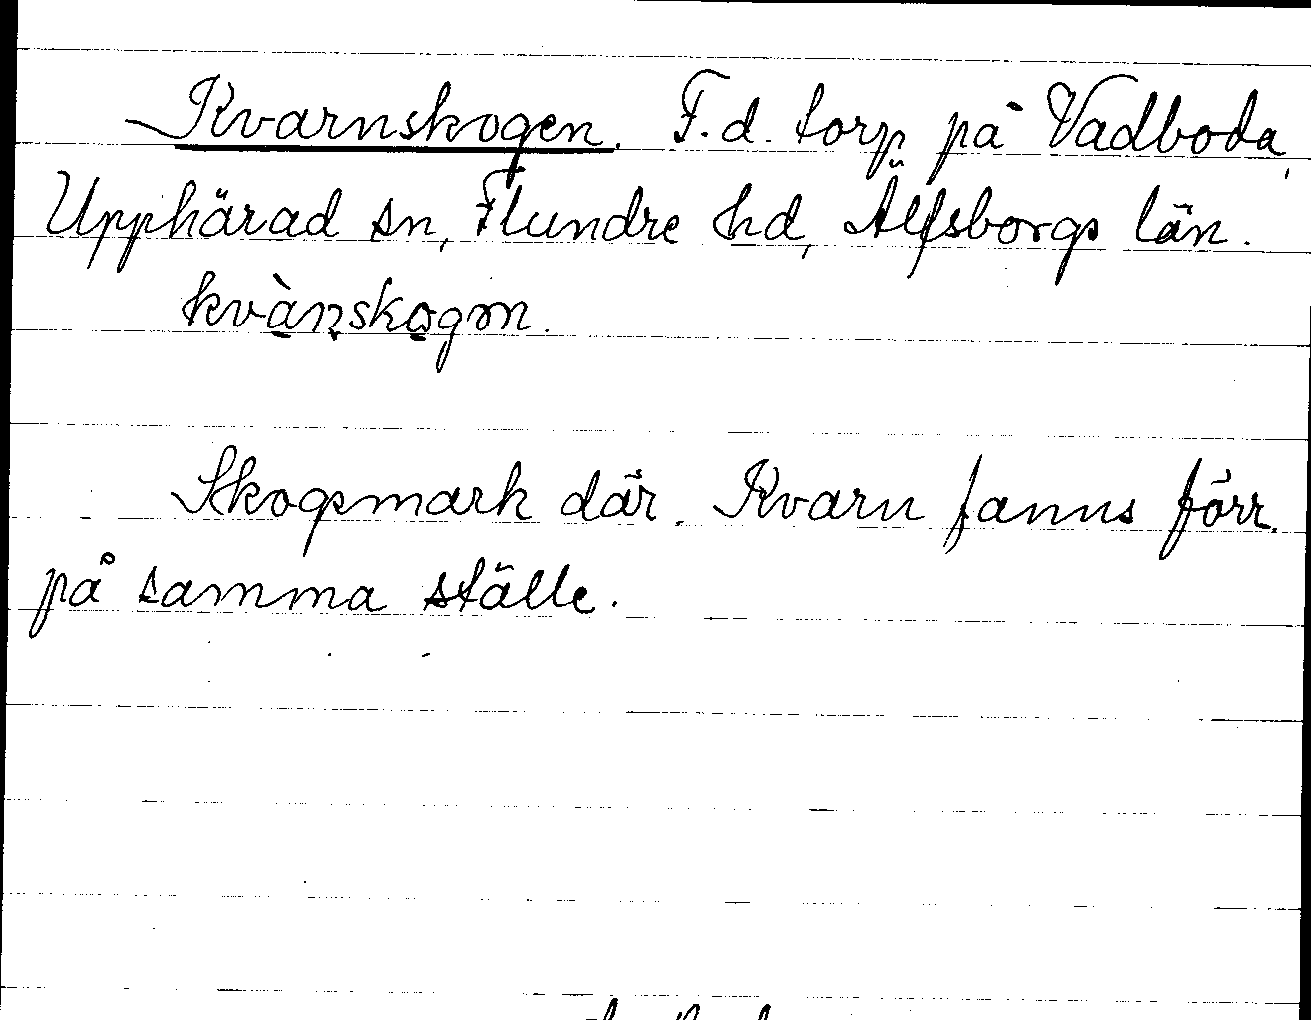 Kvarnskogen. F.d. torp på Vadboda,
Upphärad sn, Flundre hd, Älfsborgs län.
kvànskogon.
Skogsmark där. Kvarn fanns förr
på samma ställe.